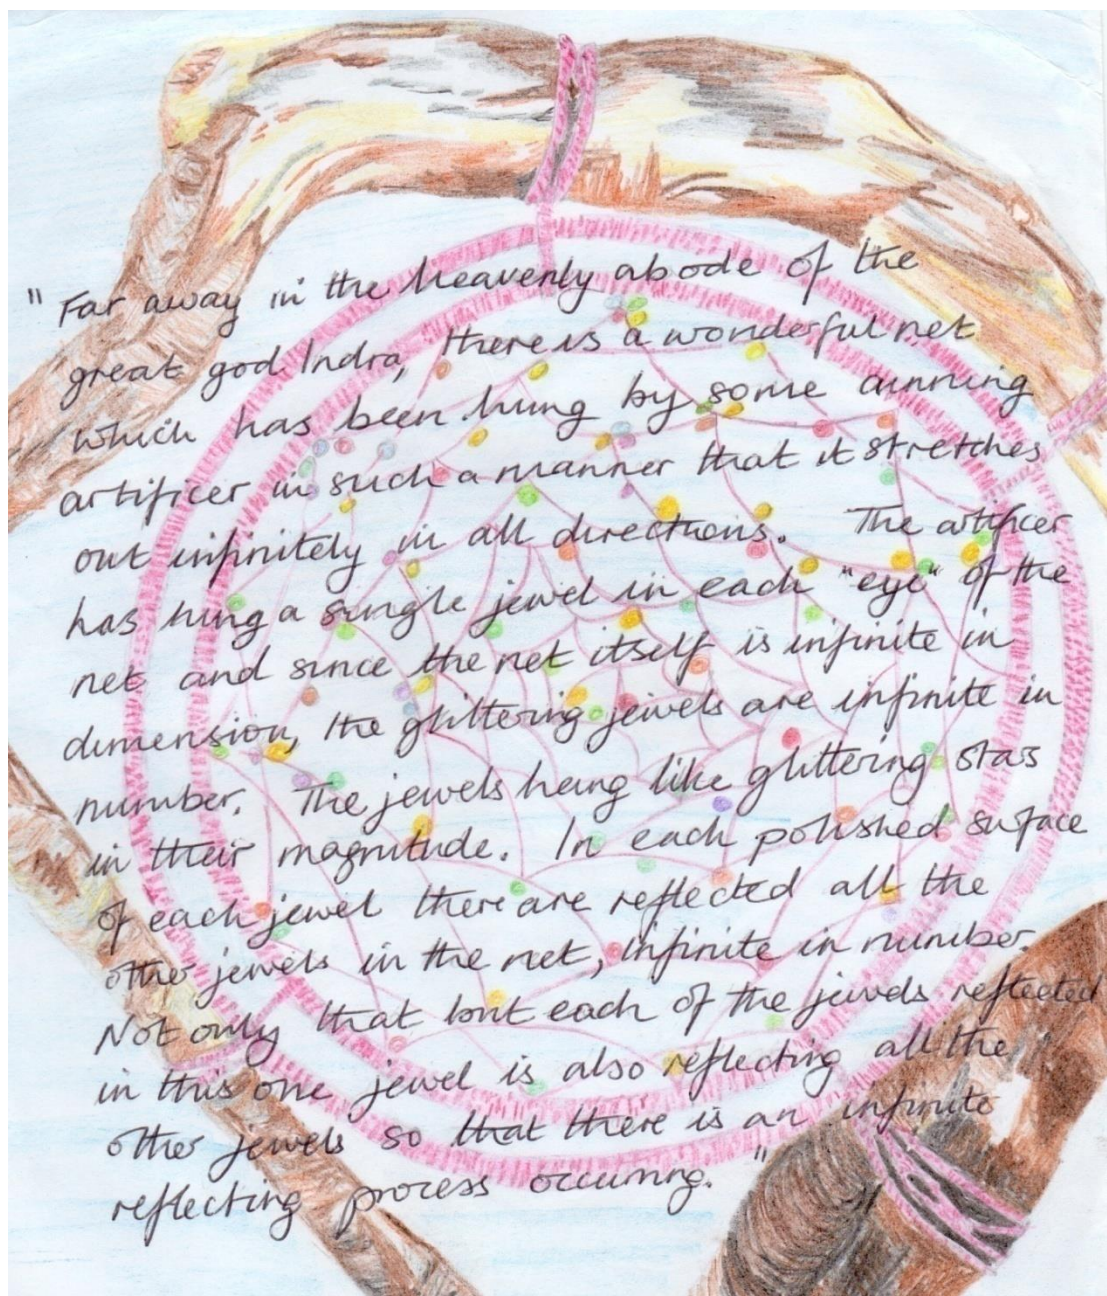 "Far away in the heavenly abode of the
great god Indra, there is a wonderful net
which has been hung by some cunning
artificer in such a manner that it stretches
out infinitely in all directions. The artificer
has hung a single jewel in each "eye" of the
net and since the net itself is infinite in
dimension, the glittering jewels are infinite in
number. The jewels hang like glittering stars
in their magnitude. In each polished surface
of each jewel there are reflected all the
other jewels in the net, infinite in number.
Not only that but each of the jewels reflected
in this one jewel is also reflecting all the
other jewels so that there is an infinite
reflecting process occurring."